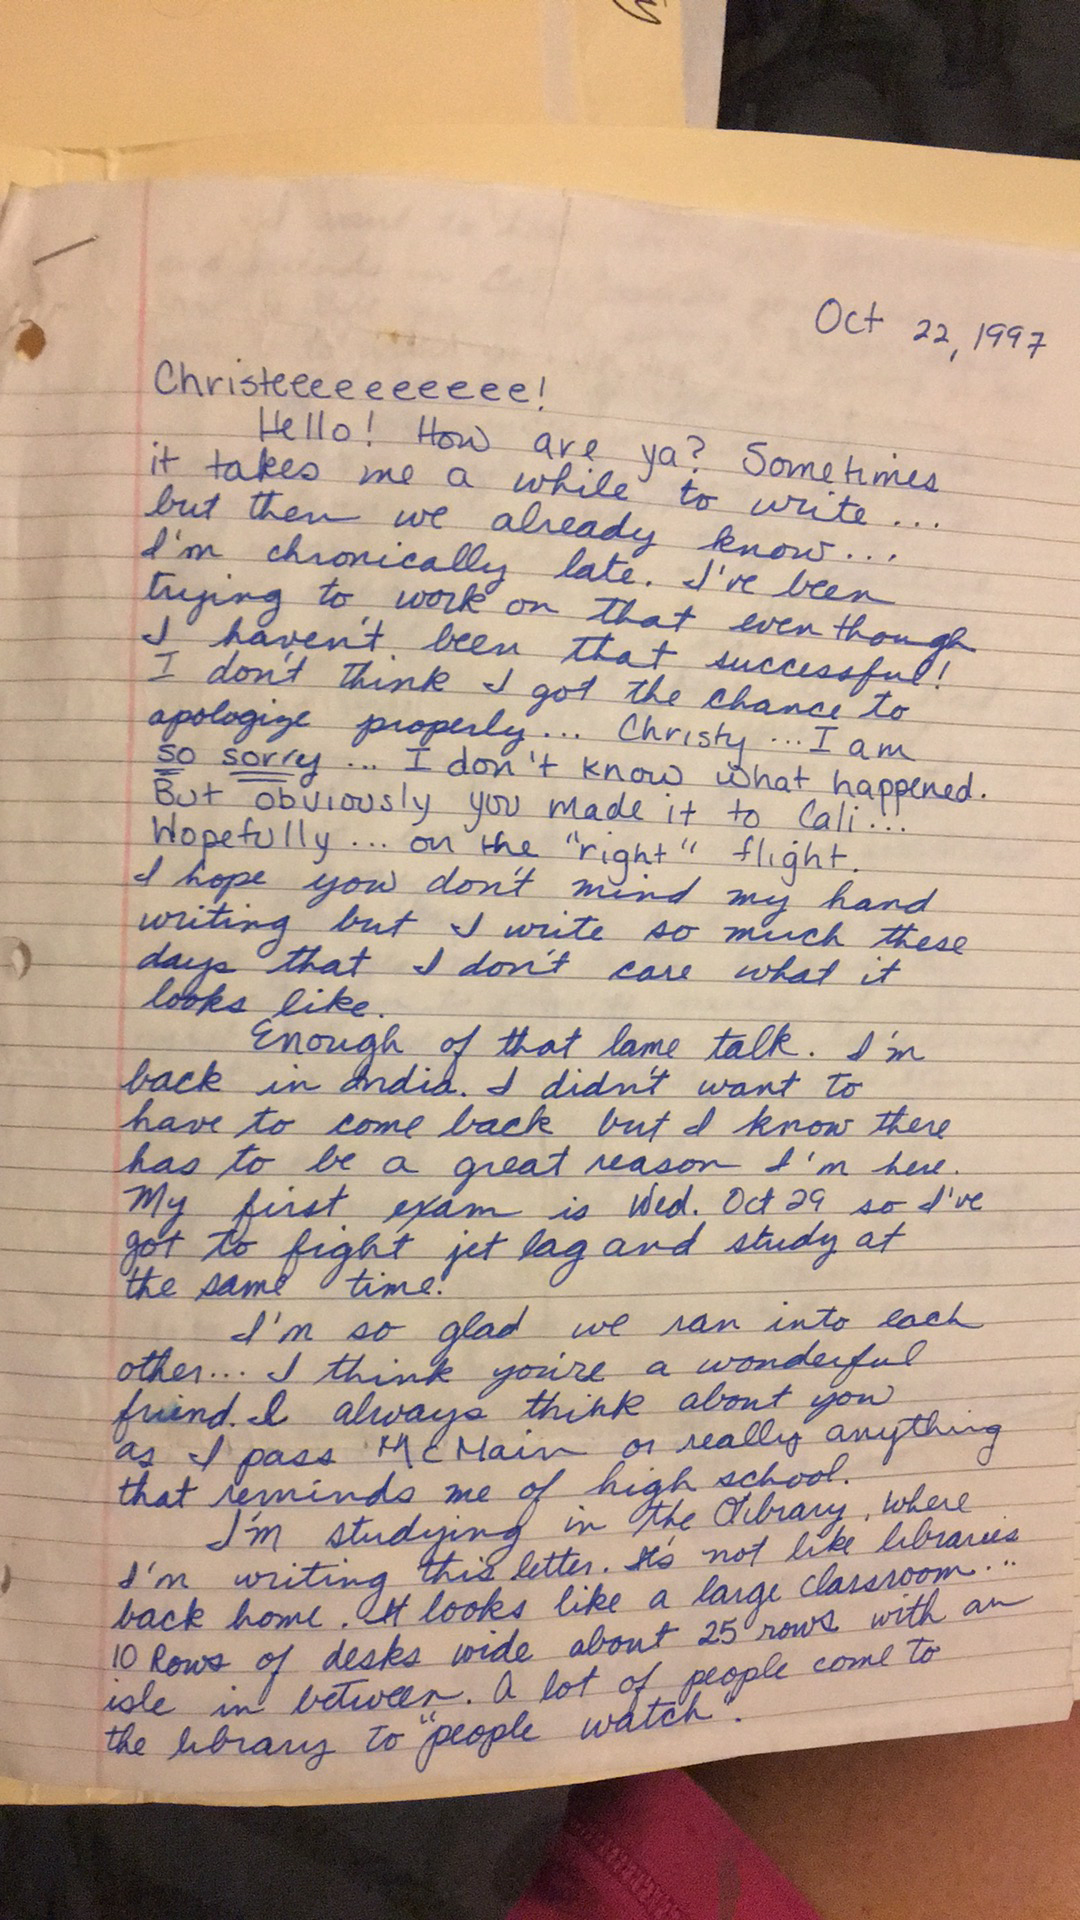 Oct 22, 1997
Christeeeeeeeeeee!
Hello! How are ya? Sometimes
it takes me a while to write...
but then we already know...
I'm chronically late. I've been
trying to work on that even though
I haven't been that successful!
I don't think I got the chance to
apologize properly... Christy ...I am
so sorry ... I don't know what happened.
But obviously you made it to Cali...
Hopefully ... on the "right" flight.
I hope you don't mind my hand
writing but I write so much these
days that I don't care what it
looks like.
Enough of that lame talk. I'm
back in India. I didn't want to
have to come back but I know there
has to be a great reason I'm here.
My first exam is Wed. Oct 29 so I've
got to fight jet lag and study at
the same time.
I'm so glad we ran into each
other... I think you're a wonderful
friend. I always think about you
as I pass McMain or really anything
that reminds me of high school.
I'm studying in the library, where
I'm writing this letter. It's not like libraries
back home. It looks like a large classroom...
10 Rows of desks wide about 25 rows with an
isle in between. A lot of people come to
the library to "people watch".